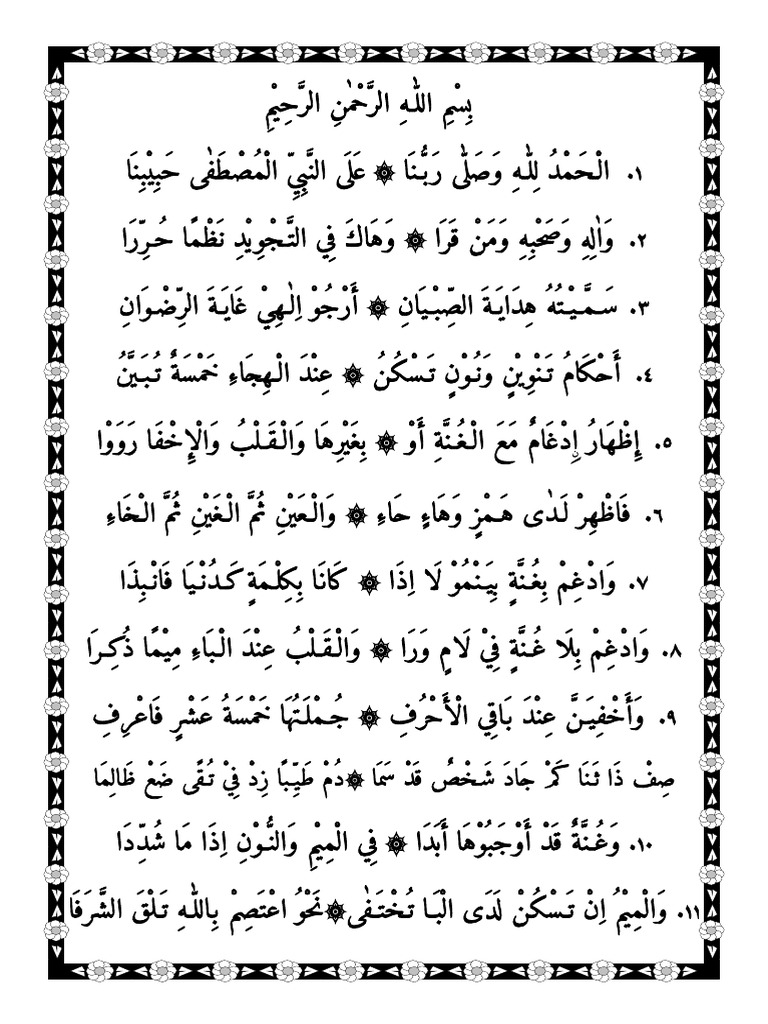 بِسْمِ اللّٰهِ الرَّحْمٰنِ الرَّحِيْمِ
١. الْحَمْدُ لِلّٰهِ وَصَلّٰى رَبُّنَا ۞ عَلَى النَّبِيِّ الْمُصْطَفٰى حَبِيْبِنَا
٢. وَاٰلِهِ وَصَحْبِهِ وَمَنْ قَرَا ۞ وَهَاكَ فِي التَّجْوِيْدِ نَظْمًا حُرِّرَا
٣. سَمَّيْتُهُ هِدَايَةَ الصِّبْيَانِ ۞ أَرْجُوْ اِلٰهِيْ غَايَةَ الرِّضْوَانِ
٤. أَحْكَامُ تَنْوِيْنٍ وَنُوْنٍ تَسْكُنُ ۞ عِنْدَ الْهِجَاءِ خَمْسَةٌ تُبَيَّنُ
٥. إِظْهَارُ إِدْغَامٌ مَعَ الْغُنَّةِ أَوْ ۞ بِغَيْرِهَا وَالْقَلْبُ وَالْإِخْفَا رَوَوْا
٦. فَاظْهِرْ لَدٰى هَمْزٍ وَهَاءٍ حَاءِ ۞ وَالْعَيْنِ ثُمَّ الْغَيْنِ ثُمَّ الْخَاءِ
٧. وَادْغِمْ بِغُنَّةٍ بِيَنْمُوْ لَا اِذَا ۞ كَانَا بِكِلْمَةٍ كَدُنْيَا فَانْبِذَا
٨. وَادْغِمْ بِلَا غُنَّةٍ فِيْ لَامٍ وَرَا ۞ وَالْقَلْبُ عِنْدَ الْبَاءِ مِيْمًا ذُكِرَا
٩. وَأَخْفِيَنَّ عِنْدَ بَاقِي الْأَحْرُفِ ۞ جُمْلَتُهَا خَمْسَةُ عَشْرٍ فَاعْرِفِ
صِفْ ذَا ثَنَا كَمْ جَادَ شَخْصٌ قَدْ سَمَا ۞ دُمْ طَيِّبًا زِدْ فِيْ تُقًى ضَعْ ظَالِمَا
١٠. وَغُنَّةٌ قَدْ أَوْجَبُوْهَا أَبَدَا ۞ فِي الْمِيْمِ وَالنُّوْنِ اِذَا مَا شُدِّدَا
١١. وَالْمِيْمُ اِنْ تَسْكُنْ لَدَى الْبَا تُخْتَفٰى ۞ نَحْوُ اعْتَصِمْ بِاللّٰهِ تَلْقَ الشَّرَفَا